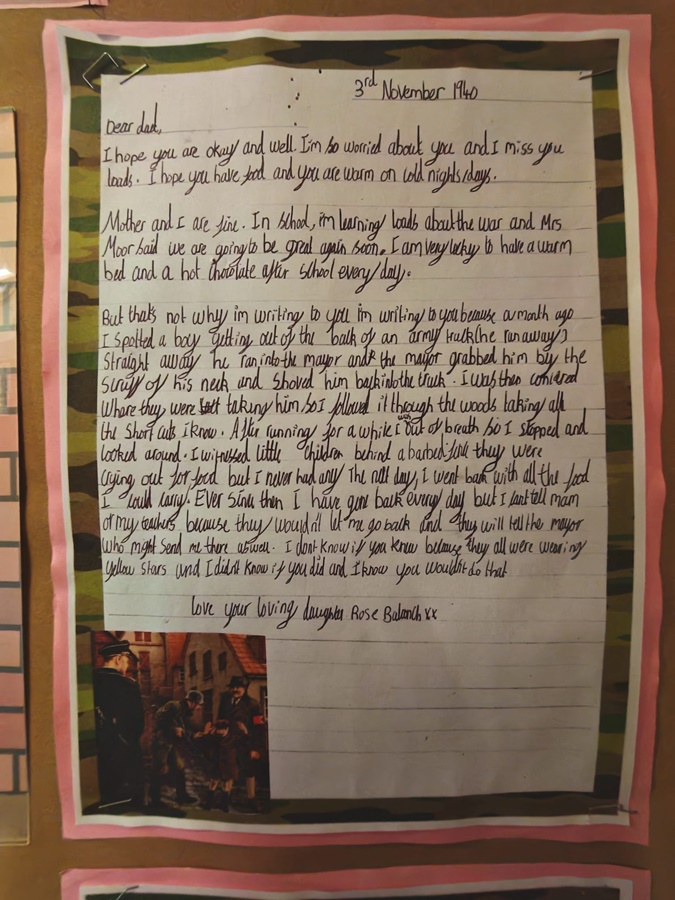 3rd November 1940
Dear dad,
I hope you are okay and well. I'm so worried about you and I miss you
loads. I hope you have food and you are warm on cold nights/days.
Mother and I are fine. In school, i'm learning loads about the war and Mrs
Moor said we are going to be great again soon. I am very lucky to have a warm
bed and a hot chocolate after school every day.
But that's not why i'm writing to you i'm writing to you because a month ago
I spotted a boy getting out of the back of an army truck (he run away)
straight away he ran into the mayor and the mayor grabbed him by the
scruff of his neck and shoved him back into the truck. I was then
where they were taking him so I followed it through the woods taking all
the short cuts i know. After running for a while i was out of breath so I stopped and
looked around. I witnessed little children behind a barbed fence they were
crying out for food but I never had any. The next day, I went back with all the food
I could carry. Ever since then I have gone back every day but I cant tell mam
or my teachers because they wouldn't let me go back and they will tell the mayor
who might send me there aswell. I dont know if you knew because they all were wearing
yellow stars and I didn't know if you did and I know you wouldn't do that
love your loving daughter Rose xx